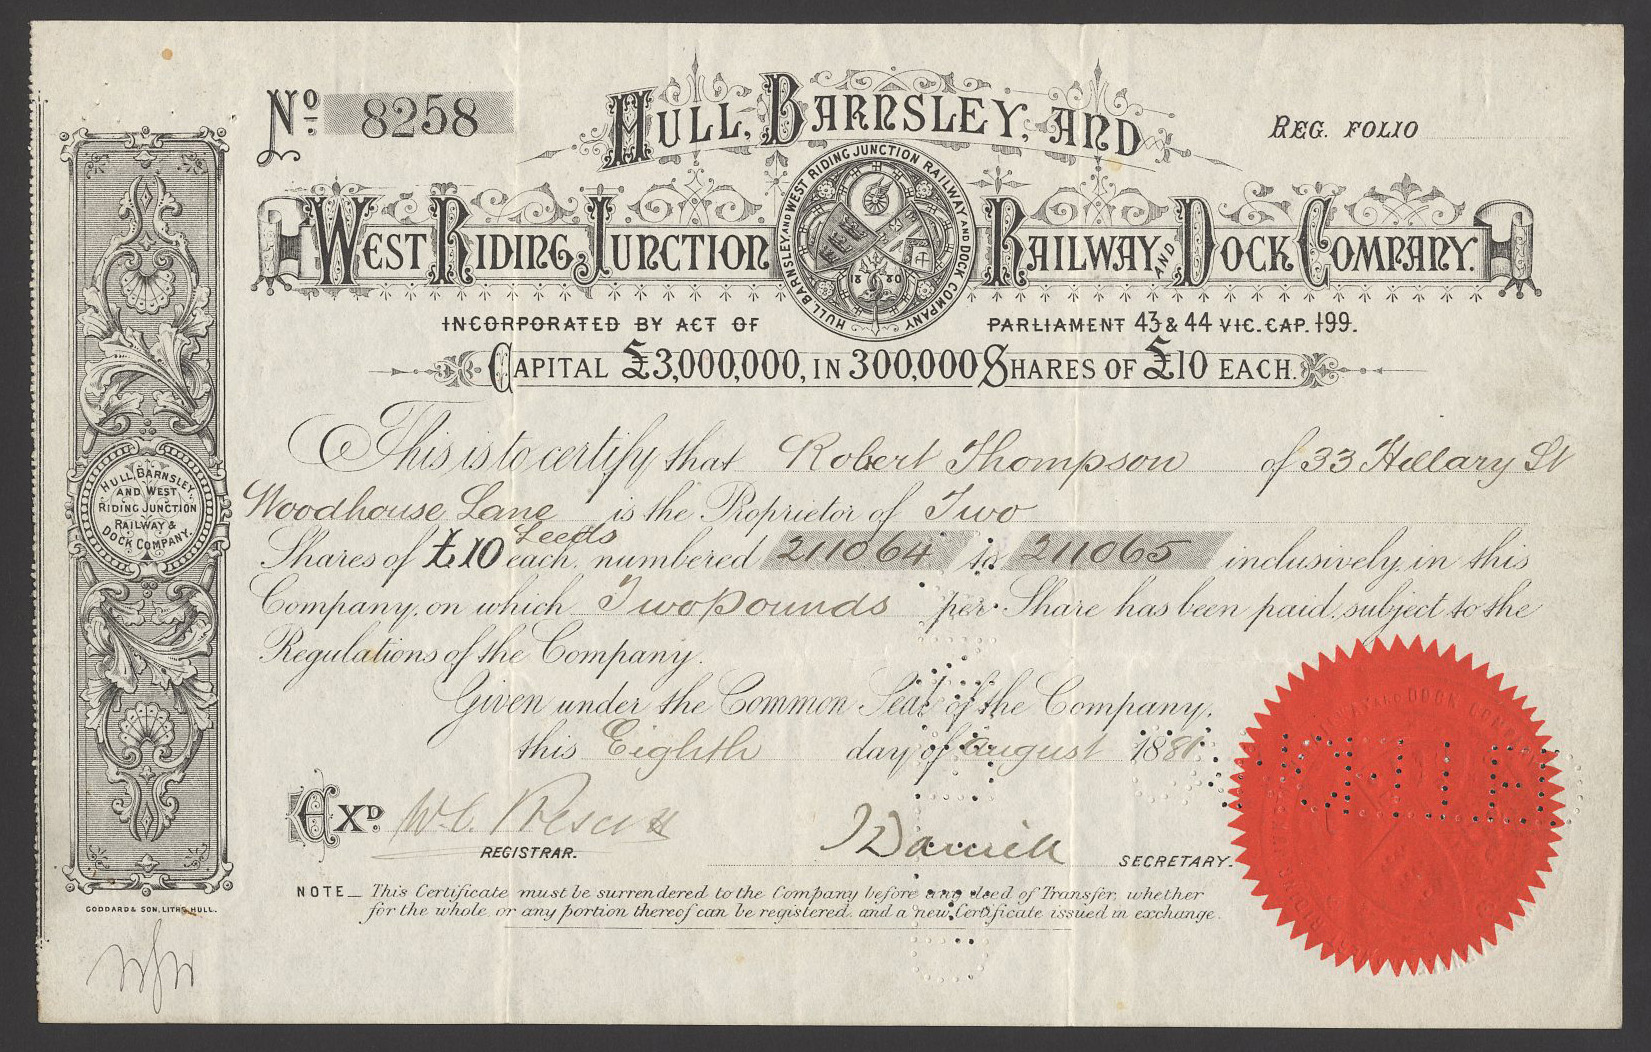 No 8258
HULL, BARNSLEY, AND
REG. FOLIO
WEST RIDING JUNCTION RAILWAY AND DOCK COMPANY.
HULL BARNSLEY AND WEST RIDING JUNCTION RAILWAY AND DOCK COMPANY
1880
INCORPORATED BY ACT OF PARLIAMENT 43 & 44 VIC. CAP. 199.
CAPITAL £3,000,000, IN 300,000 SHARES OF £10 EACH.
This is to certify that Robert Thompson of 33 Hellary St
Woodhouse Lane is the Proprietor of Two
Leeds
Shares of £10 each, numbered 211064 to 211065 inclusively, in this
Company, on which Two pounds per Share has been paid, subject to the
Regulations of the Company.
Given under the Common Seal of the Company,
this Eighth day of August 1881
EXD.
REGISTRAR.
SECRETARY.
NOTE_ This Certificate must be surrendered to the Company before any deed of Transfer, whether
for the whole or any portion thereof can be registered, and a new Certificate issued in exchange.
HULL, BARNSLEY,
AND WEST
RIDING JUNCTION
RAILWAY &
DOCK COMPANY.
GODDARD & SON, LITHO, HULL.